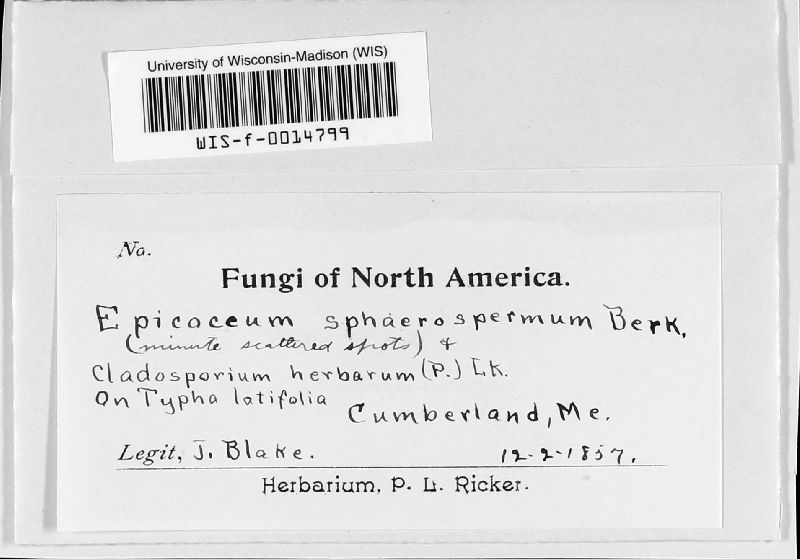 University of Wisconsin-Madison (WIS)
WIS-f-0014799
No.
Fungi of North America.
Epicoceum sphaerospermum Berk,
(minute scattered spots) &
Cladosporium herbarum (P.) Lk.
On Typha latifolia
Cumberland, Me.
Legit, J. Blake. 12-2-1857.
Herbarium, P. L. Ricker.